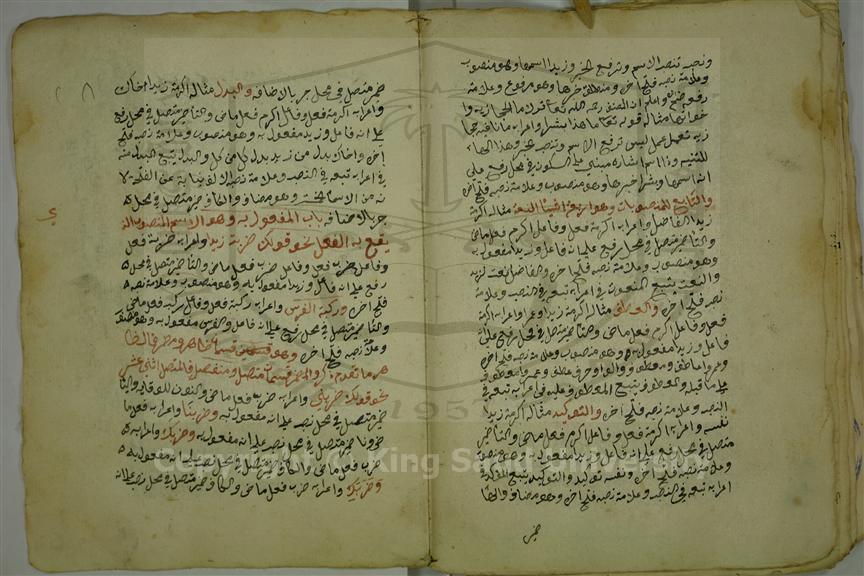 ونصبه تنصب الاسم وترفع الخبر وزيدا اسمها وهو منصوب
وعلامة نصبه فتح اخره ومنطلق خبرها وهو مرفوع وعلامة
رفعه ضم واعلم ان المصنف رحمه الله
مثال قوله تعالى ما هذا بشرا واعرابه ما نافية حجا
زية تعمل عمل ليس ترفع الاسم وتنصب الخبر وهذا الهاء
للتنبيه وذا اسم اشارة مبني على السكون في محل رفع على
انه اسمها وبشرا خبرها وهو منصوب وعلامة نصبه فتح اخره
والتابع للمنصوبات وهو اربعة اشياء النعت مثاله اكرمت
زيدا الفاضل واعرابه اكرمت فعل وفاعل اكرم فعل ماضي
والتا ضمير متصل في محل رفع على انه فاعل وزيدا مفعول به
وهو منصوب وعلامة نصبه فتح اخره والفاضل نعت لزيد
والنعت يتبع المنعوت في اعرابه تبعه في النصب وعلامة
نصبه فتح اخره والعطف مثاله اكرمت زيدا وعمرا واعرابه اكرمت
فعل وفاعل اكرم فعل ماضي والتا ضمير متصل في محل رفع على انه
فاعل وزيدا مفعول به وهو منصوب وعلامة نصبه فتح اخره
وعمرا عاطف ومعطوف والواو حرف عطف وعمرا معطوف
على ما قبله والمعطوف يتبع المعطوف عليه في اعرابه تبعه في
النصب وعلامة نصبه فتح اخره والتوكيد مثاله اكرمت زيدا
نفسه واعرابه اكرمت فعل وفاعل اكرم فعل ماضي والتا ضمير
متصل في محل رفع على انه فاعل وزيدا مفعول به وهو منصوب
وعلامة نصبه فتح اخره ونفسه توكيد والتوكيد يتبع المؤكد في
اعرابه تبعه في النصب وعلامة نصبه فتح اخره وهو مضاف والها
ضمير
ضمير متصل في محل جر بالاضافه والبدل مثاله اكرمت زيدا اخاك
واعرابه اكرمت فعل وفاعل اكرم فعل ماضي والتا ضمير متصل في محل رفع
على انه فاعل وزيدا مفعول به وهو منصوب وعلامة نصبه فتح
اخره واخاك بدل من زيد بدل كل من كل والبدل يتبع المبدل منه
في اعرابه تبعه في النصب وعلامة نصبه الالف نيابة عن الفتحة لا
نه من الاسماء الخمسة وهو مضاف والكاف ضمير متصل في محل
جر بالاضافه باب المفعول به وهو الاسم المنصوب الذي
يقع به الفعل نحو قولك ضربت زيدا واعرابه ضربت فعل
وفاعل ضرب فعل ماضي والتا ضمير متصل في محل
رفع على انه فاعل وزيدا مفعول به وهو منصوب وعلامة نصبه
فتح اخره وركبت الفرس واعرابه ركبت فعل وفاعل ركب فعل ماضي
والتا ضمير متصل في محل رفع على انه فاعل والفرس مفعول به وهو منصوب
وعلامة نصبه فتح اخره وهو قسمان ظاهر ومضمر فالظا
هر ما تقدم ذكره والمضمر قسمان متصل ومنفصل فالمتصل اثني عشر
نحو قولك ضربني واعرابه ضرب فعل ماضي والنون للوقاية واليا
ضمير متصل في محل نصب على انه مفعول به وضربنا واعرابه ضرب فعل ما
ضي ونا ضمير متصل في محل نصب على انه مفعول به وضربك واعرابه
ضرب فعل ماضي والكاف ضمير متصل في محل نصب على انه مفعول به
وضربك واعرابه ضرب فعل ماضي والكاف ضمير متصل في محل نصب على انه
1957
Copyright © King Saud University